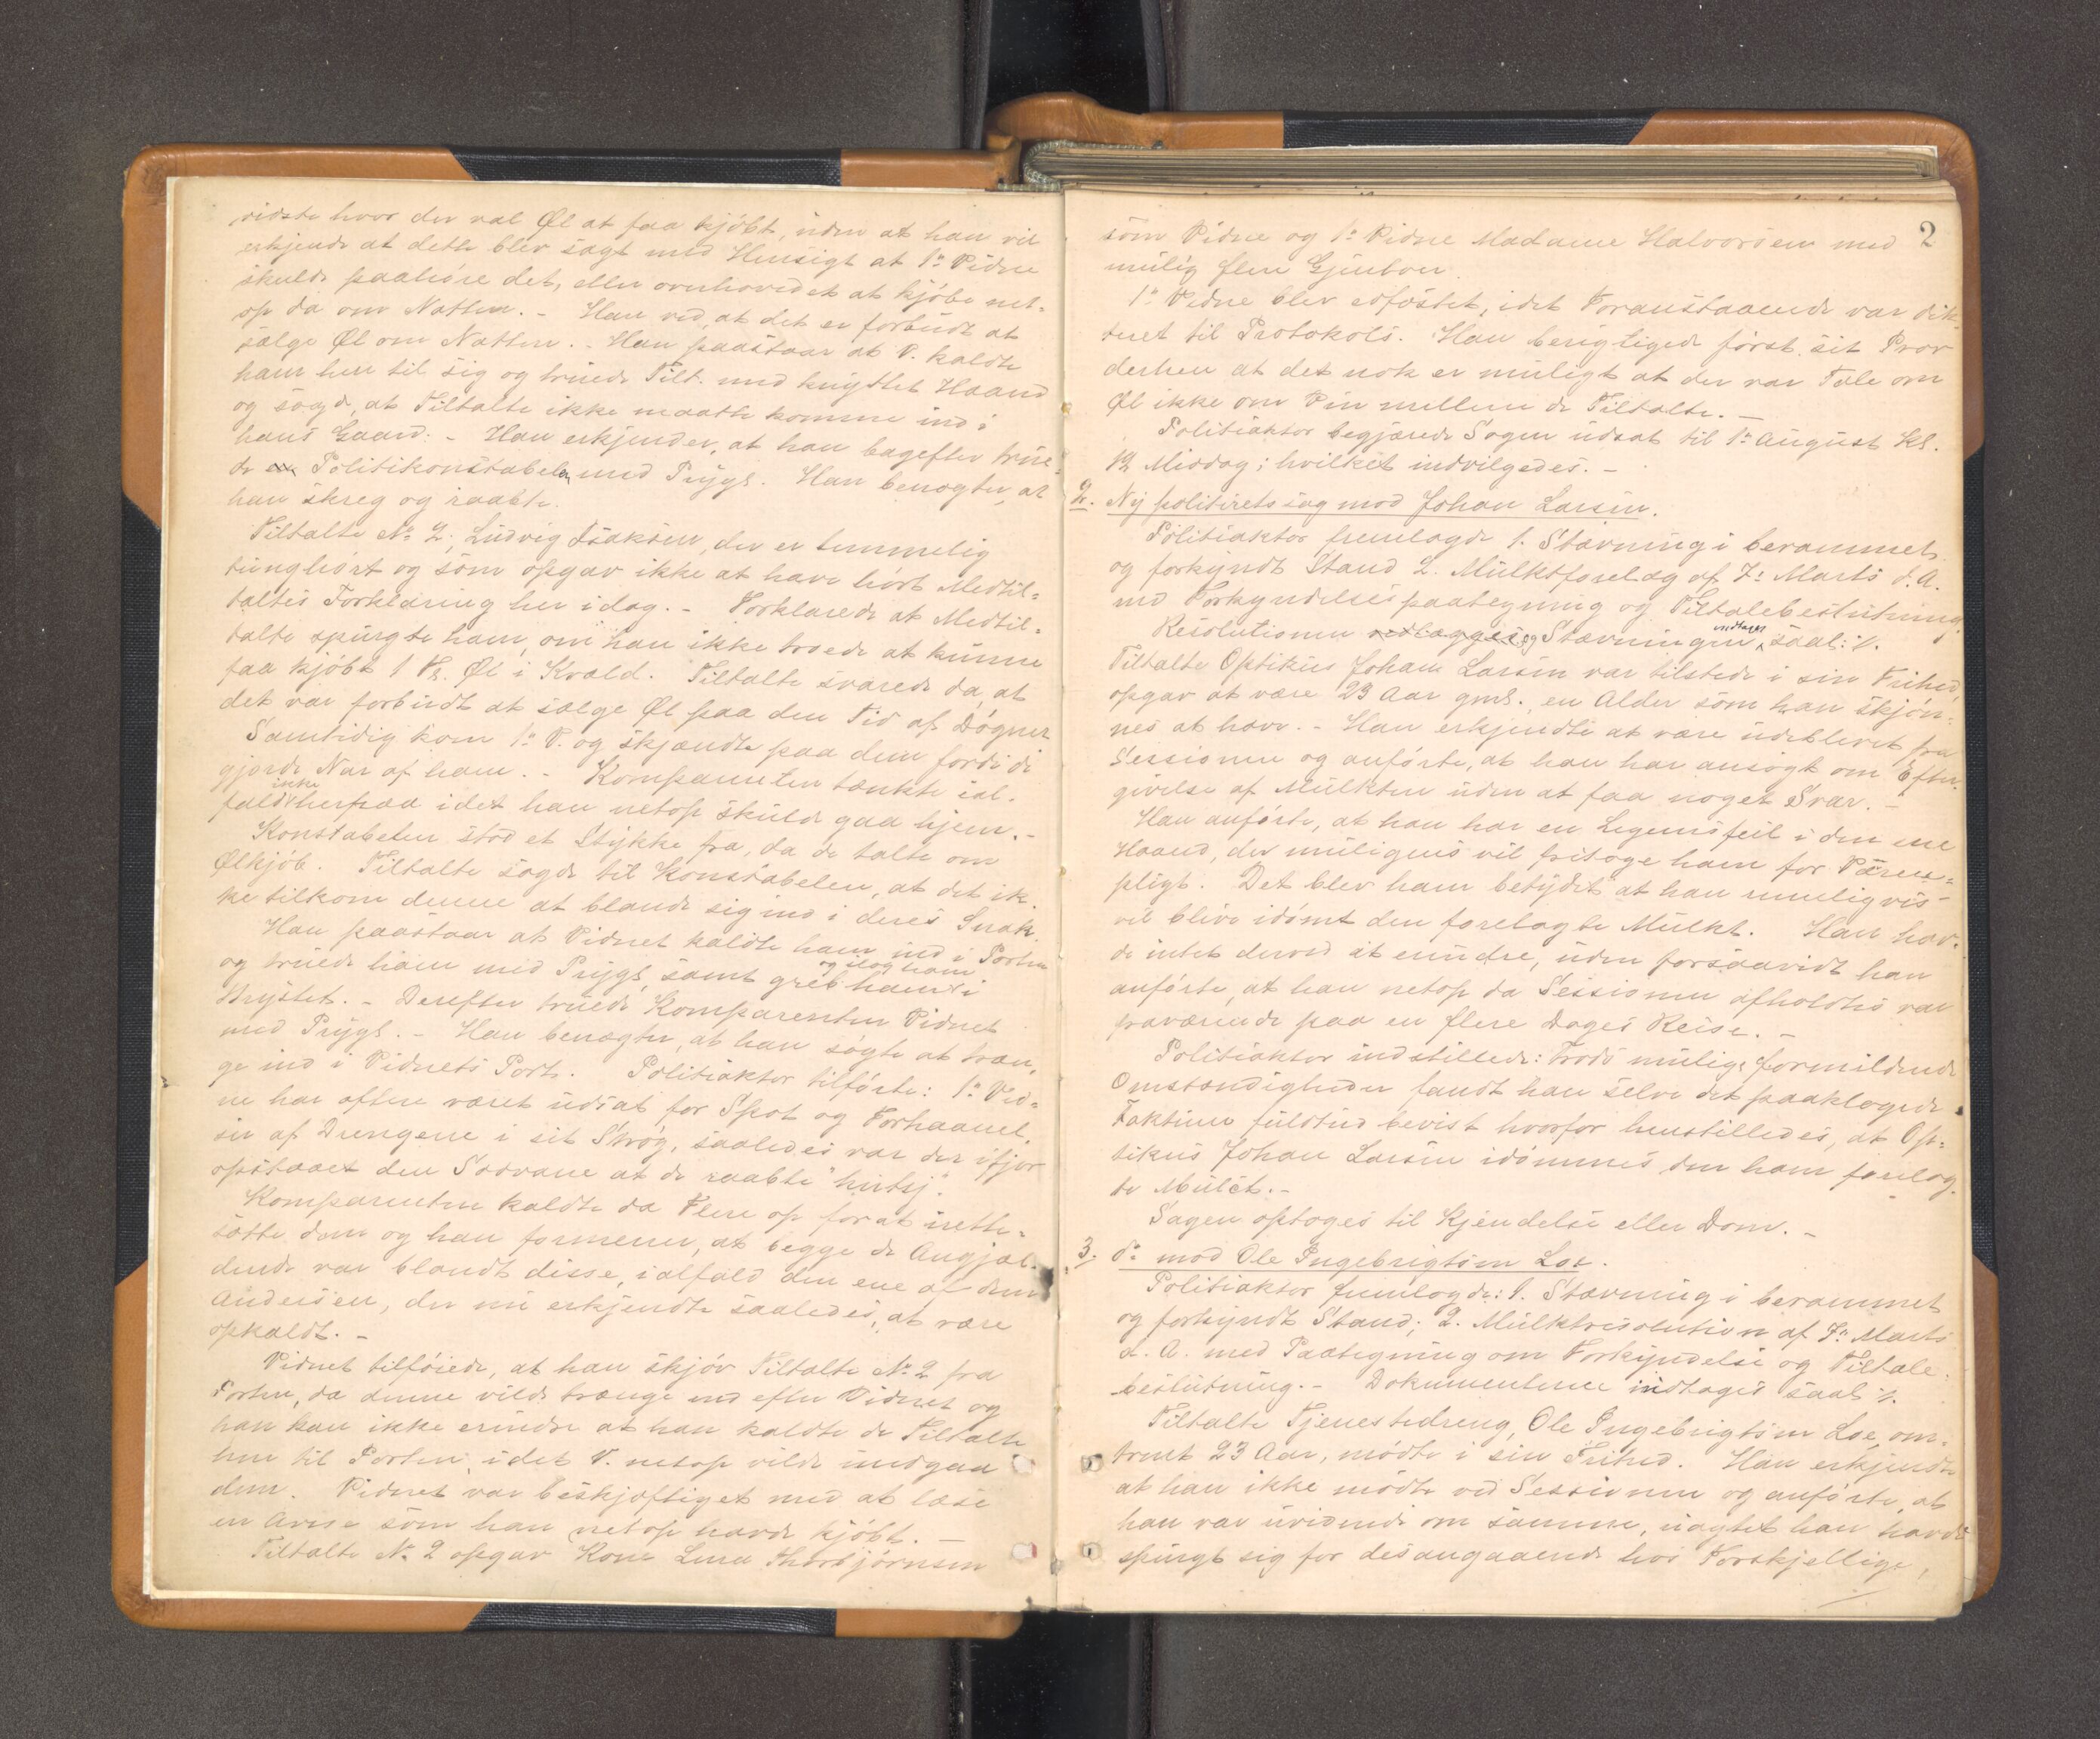 vidste hvor der val Øl at faa kjøbt, uden at han vil
erkjende at dette blev sagt med Hensigt at 1ste Vidne
skulde paahøre det, eller overhovedet at kjøbe net-
op da om Natten. - Han ved, at det er forbudt at
sælge Øl om Natten. - Han paastaar at V. kaldte
ham hen til sig og truede Tilt. med knyttet Haand
og sagde, at Tiltalte ikke maatte komme ind i
hans Gaard. - Han erkjender, at han bagefter true-
de en Politikonstabelen med Prygl. Han benegter, at
han skreg og raabte.
Tiltalte No 2, Ludvig Isaksen, der er temmelig
tunghørt og som opgav ikke at have hørt Medtil=
taltes Forklaring her idag. - Forklarede at Medtil=
talte spurgte ham, om han ikke troede at kunne
faa kjøbt 1 Fl. Øl i Kvæld. Tiltalte svarede da, at
det var forbudt at sælge Øl paa den Tid af Døgnet
Samtidig kom 1ste V. og skjændte paa dem fordi de
gjorde Nar af ham. - Komparenten tænkte ial-
fald ikke herpaa idet han netop skulde gaa hjem. -
Konstabelen stod et Stykke fra, da de talte om
Ølkjøb. Tiltalte sagde til Konstabelen, at det ik-
ke tilkom denne at blande sig ind i deres Snak.
Han paastaar at Vidnet kaldte ham ind i Porten
og truede ham med Prygl, samt greb ham og slog ham i
Brystet. - Derefter truede Komparenten Vidnet
med Prygl. - Han benegter, at han søgte at træn-
ge ind i Vidnets Port. Politiaktor tilførte: 1ste Vid=
ne har oftere været udsat for Spot og Forhaanel-
ser af Drengene i sit Strøg, saaledes var der ifjor
opstaaet den Sædvane at de raabte "hutej".
Komparenten kaldte da Flere op for at irette-
sætte dem og han formener, at begge de Angjæl-
dende var blandt disse, ialfald den ene af dem
Andersen, der nu erkjendte saaledes, at være
opkaldt. -
Vidnet tilføiede, at han skjøv Tiltalte No 2 fra
Porten, da denne vilde trænge ind efter Vidnet og
han kan ikke erindre at han kaldte de Tiltalte
hen til Porten, idet V. netop vilde undgaa
dem. Vidnet var beskjæftiget med at læse
en Avis som han netop havde kjøbt. -
Tiltalte No 2 opgav Kone Lena Thorbjørnsen
2
som Vidne og 1ste Vidne Madame Halvorsen med
mulig flere Gjenboer.
1ste Vidne blev edfæstet, idet Foranstaaende var dik-
teret til Protokols. Han berigtigede først sit Prov
derhen at det nok er muligt at der var Tale om
Øl ikke om Vin mellem de Tiltalte. -
Politiaktor begjærede Sagen udsat til 1ste August Kl.
12 Middag; hvilket indvilgedes. -
2. Ny politiretssag mod Johan Larsen.
Politiaktor fremlagde 1. Stævning i berammet
og forkyndt Stand 2. Mulktforelæg af 7de Marts d. A.
med Forkyndelsespaategning og Tiltalebeslutning.
Resolutionen vedlægges og Stævningen indtages saal: ./.
Tiltalte Optikus Johan Larsen var tilstede i sin Frihed,
opgav at være 23 Aar gml., en Alder som han skjøn-
nes at have. - Han erkjendte at være udeblevet fra
Sessionen og anførte, at han har ansøgt om Efter-
givelse af Mulkten uden at faa noget Svar. -
Han anførte, at han har en Legemsfeil i den ene
Haand, der muligens vil fritage ham for Værne=
pligt. Det blev ham betydet at han rimeligvis
vil blive idømt den forelagte Mulkt. Han hav-
de intet derved at erindre, uden forsaavidt han
anførte, at han netop da Sessionen afholdtes var
fraværende paa en flere Dages Reise. -
Politiaktor indstillede: Trods mulige formildende
Omstændigheder fandt han selve det paaklagede
Faktum fuldtud bevist hvorfor henstilledes, at Op=
tikus Johan Larsen idømmes den ham forelag-
te Mulct. -
Sagen optoges til Kjendelse eller Dom. -
3. do mod Ole Ingebrigtsen Loe.
Politiaktor fremlagde: 1. Stævning i berammet
og forkyndt Stand; 2. Mulktresolution af 7de Marts
d. A. med Paategning om Forkyndelse og Tiltale-
beslutning. - Dokumenterne indtages saal ./.
Tiltalte Tjenestedreng, Ole Ingebrigtsen Loe, om-
trent 23 Aar, mødte i sin Frihed. Han erkjendte
at han ikke mødte ved Sessionen og anførte, at
han var uvidende om samme, uagtet han havde
spurgt sig for desangaaende hos Forskjellige,